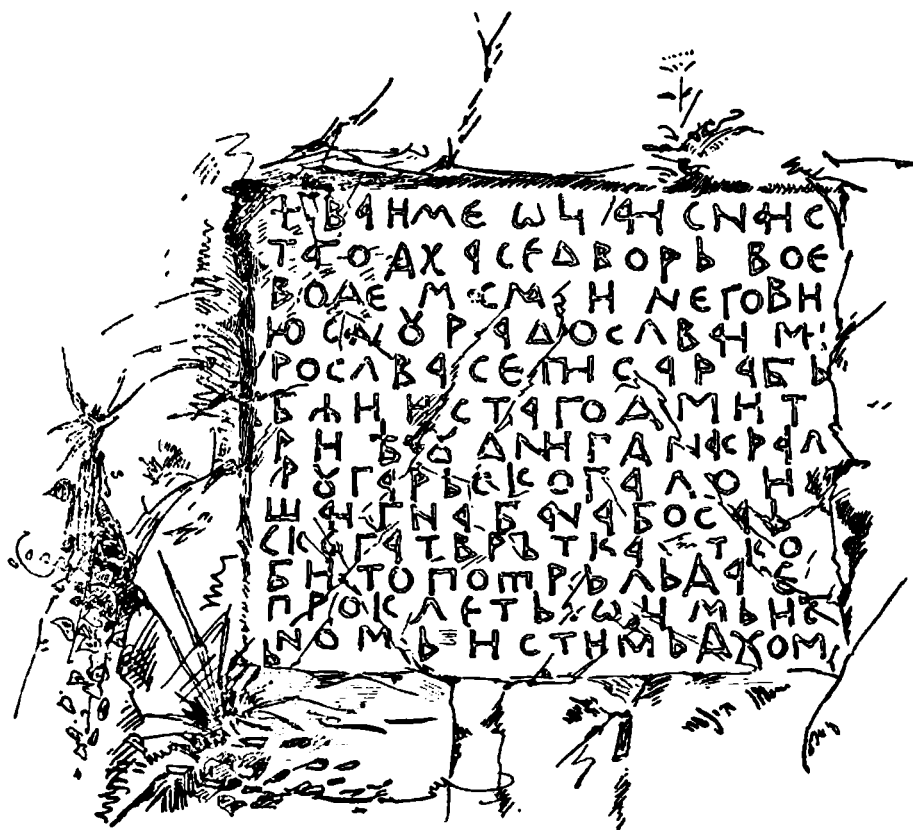 + ВА ИМЕ ѠЦА И СНА И С
ТАГО ДХА СЕ ДВОРЬ ВОЕ
ВОДЕ МАСНА И НЕГОВИ
Ю СНꙊ РАДОСЛВА И МИ
РОСЛВА СЕ ПИСА РАБЬ
БЖИ И СТАГО ДМИТ
РИ Ꙋ ДНИ Г ДНА КРАЛ
ꙊГАРЬСКОГА ЛОИ
ША И ГНА БАНА БОСАЬ
СКОГА ТВРЪТКА ТКО
БИ ТО ПОТРЬЛЬ ДА Е
ПРОКЛЕТЬ ѠИМЬ И С
ЬНОМЬ И СТИМЬ ДХОМ